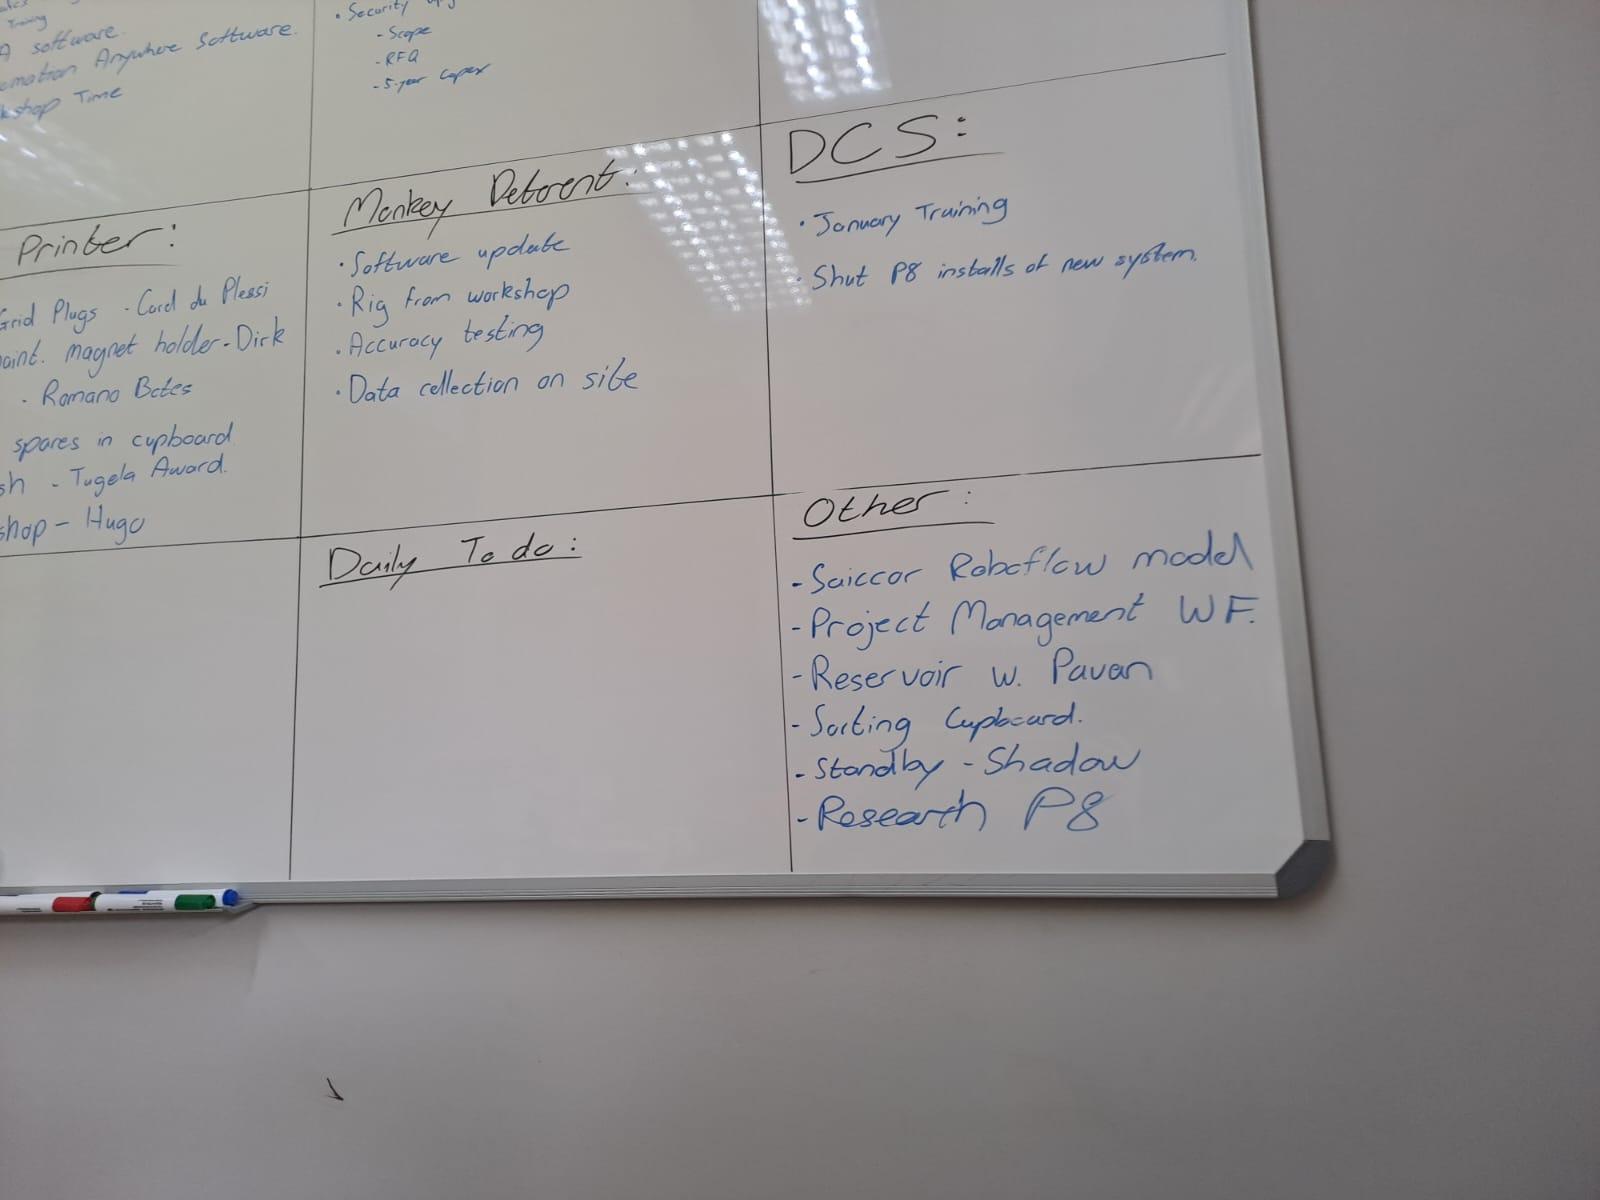 Training
software.
Anywhere Software.
Time
• Security
- Scope
- RFQ
- 5-year Capex
Printer:
Grid Plugs - Carel du Plessi
magnet holder - Dirk
- Romano Botes
spares in cupboard
- Tugela Award.
- Hugo
Monkey Deterent:
• Software update
• Rig from workshop
• Accuracy testing
• Data collection on site
DCS:
• January Training
• Shut P8 installs of new system.
Daily To do:
Other:
- Saiccor Roboflow model
- Project Management WF.
- Reservoir w. Pavan
- Sorting Cupboard.
- Standby - Shadow
- Research P8